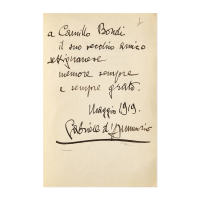 a Camillo Bondi
il suo vecchio amico
settignanese
memore sempre
e sempre grato.
Maggio 1919.
Gabriele d'Annunzio